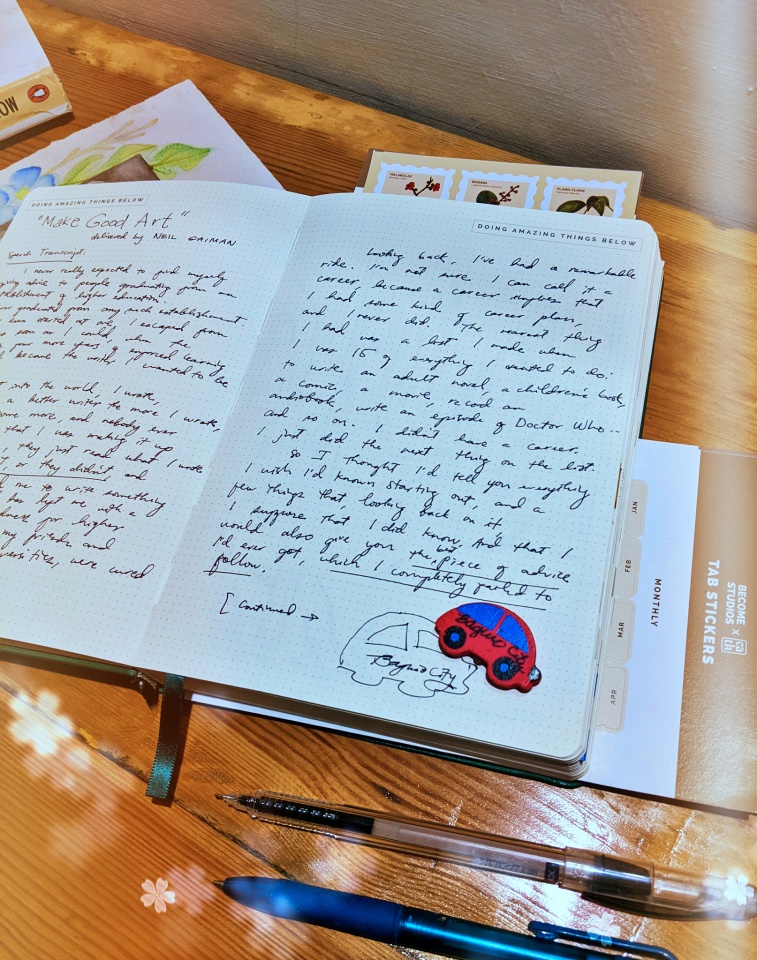 OW
MALABULAK
BANABA
YLANG-YLANG
DOING AMAZING THINGS BELOW
"Make Good Art"
delivered by NEIL GAIMAN
Speech Transcript:
I never really expected to find myself
giving advice to people graduating from an
establishment of higher education.
graduated from any such establishment.
started at one. I escaped from
soon as I could, when the
four more years of enforced learning
become the writer I wanted to be
out into the world, I wrote,
a better writer the more I wrote,
some more, and nobody ever
that I was making it up
they just read what I wrote
, or they didn't and
me to write something
has left me with a
for higher
my friends and
versities, were cured
DOING AMAZING THINGS BELOW
Looking back, I've had a remarkable
ride. I'm not sure I can call it a
career, because a career implies that
I had some kind of career plan,
and I never did. The nearest thing
I had was a list I made when
I was 15 of everything I wanted to do:
to write an adult novel, a children's book,
a comic, a movie, record an
audiobook, write an episode of Doctor Who...
and so on. I didn't have a career.
I just did the next thing on the list.
So I thought I'd tell you everything
I wish I'd known starting out, and a
few things that, looking back on it
I suppose that I did know, And that I
would also give you the best piece of advice
I'd ever got, which I completely failed to
follow.
[Continued →
Baguio City
Baguio City
JAN
FEB
MAR
APR
MONTHLY
BECOME
STUDIOS ×
TAB STICKERS